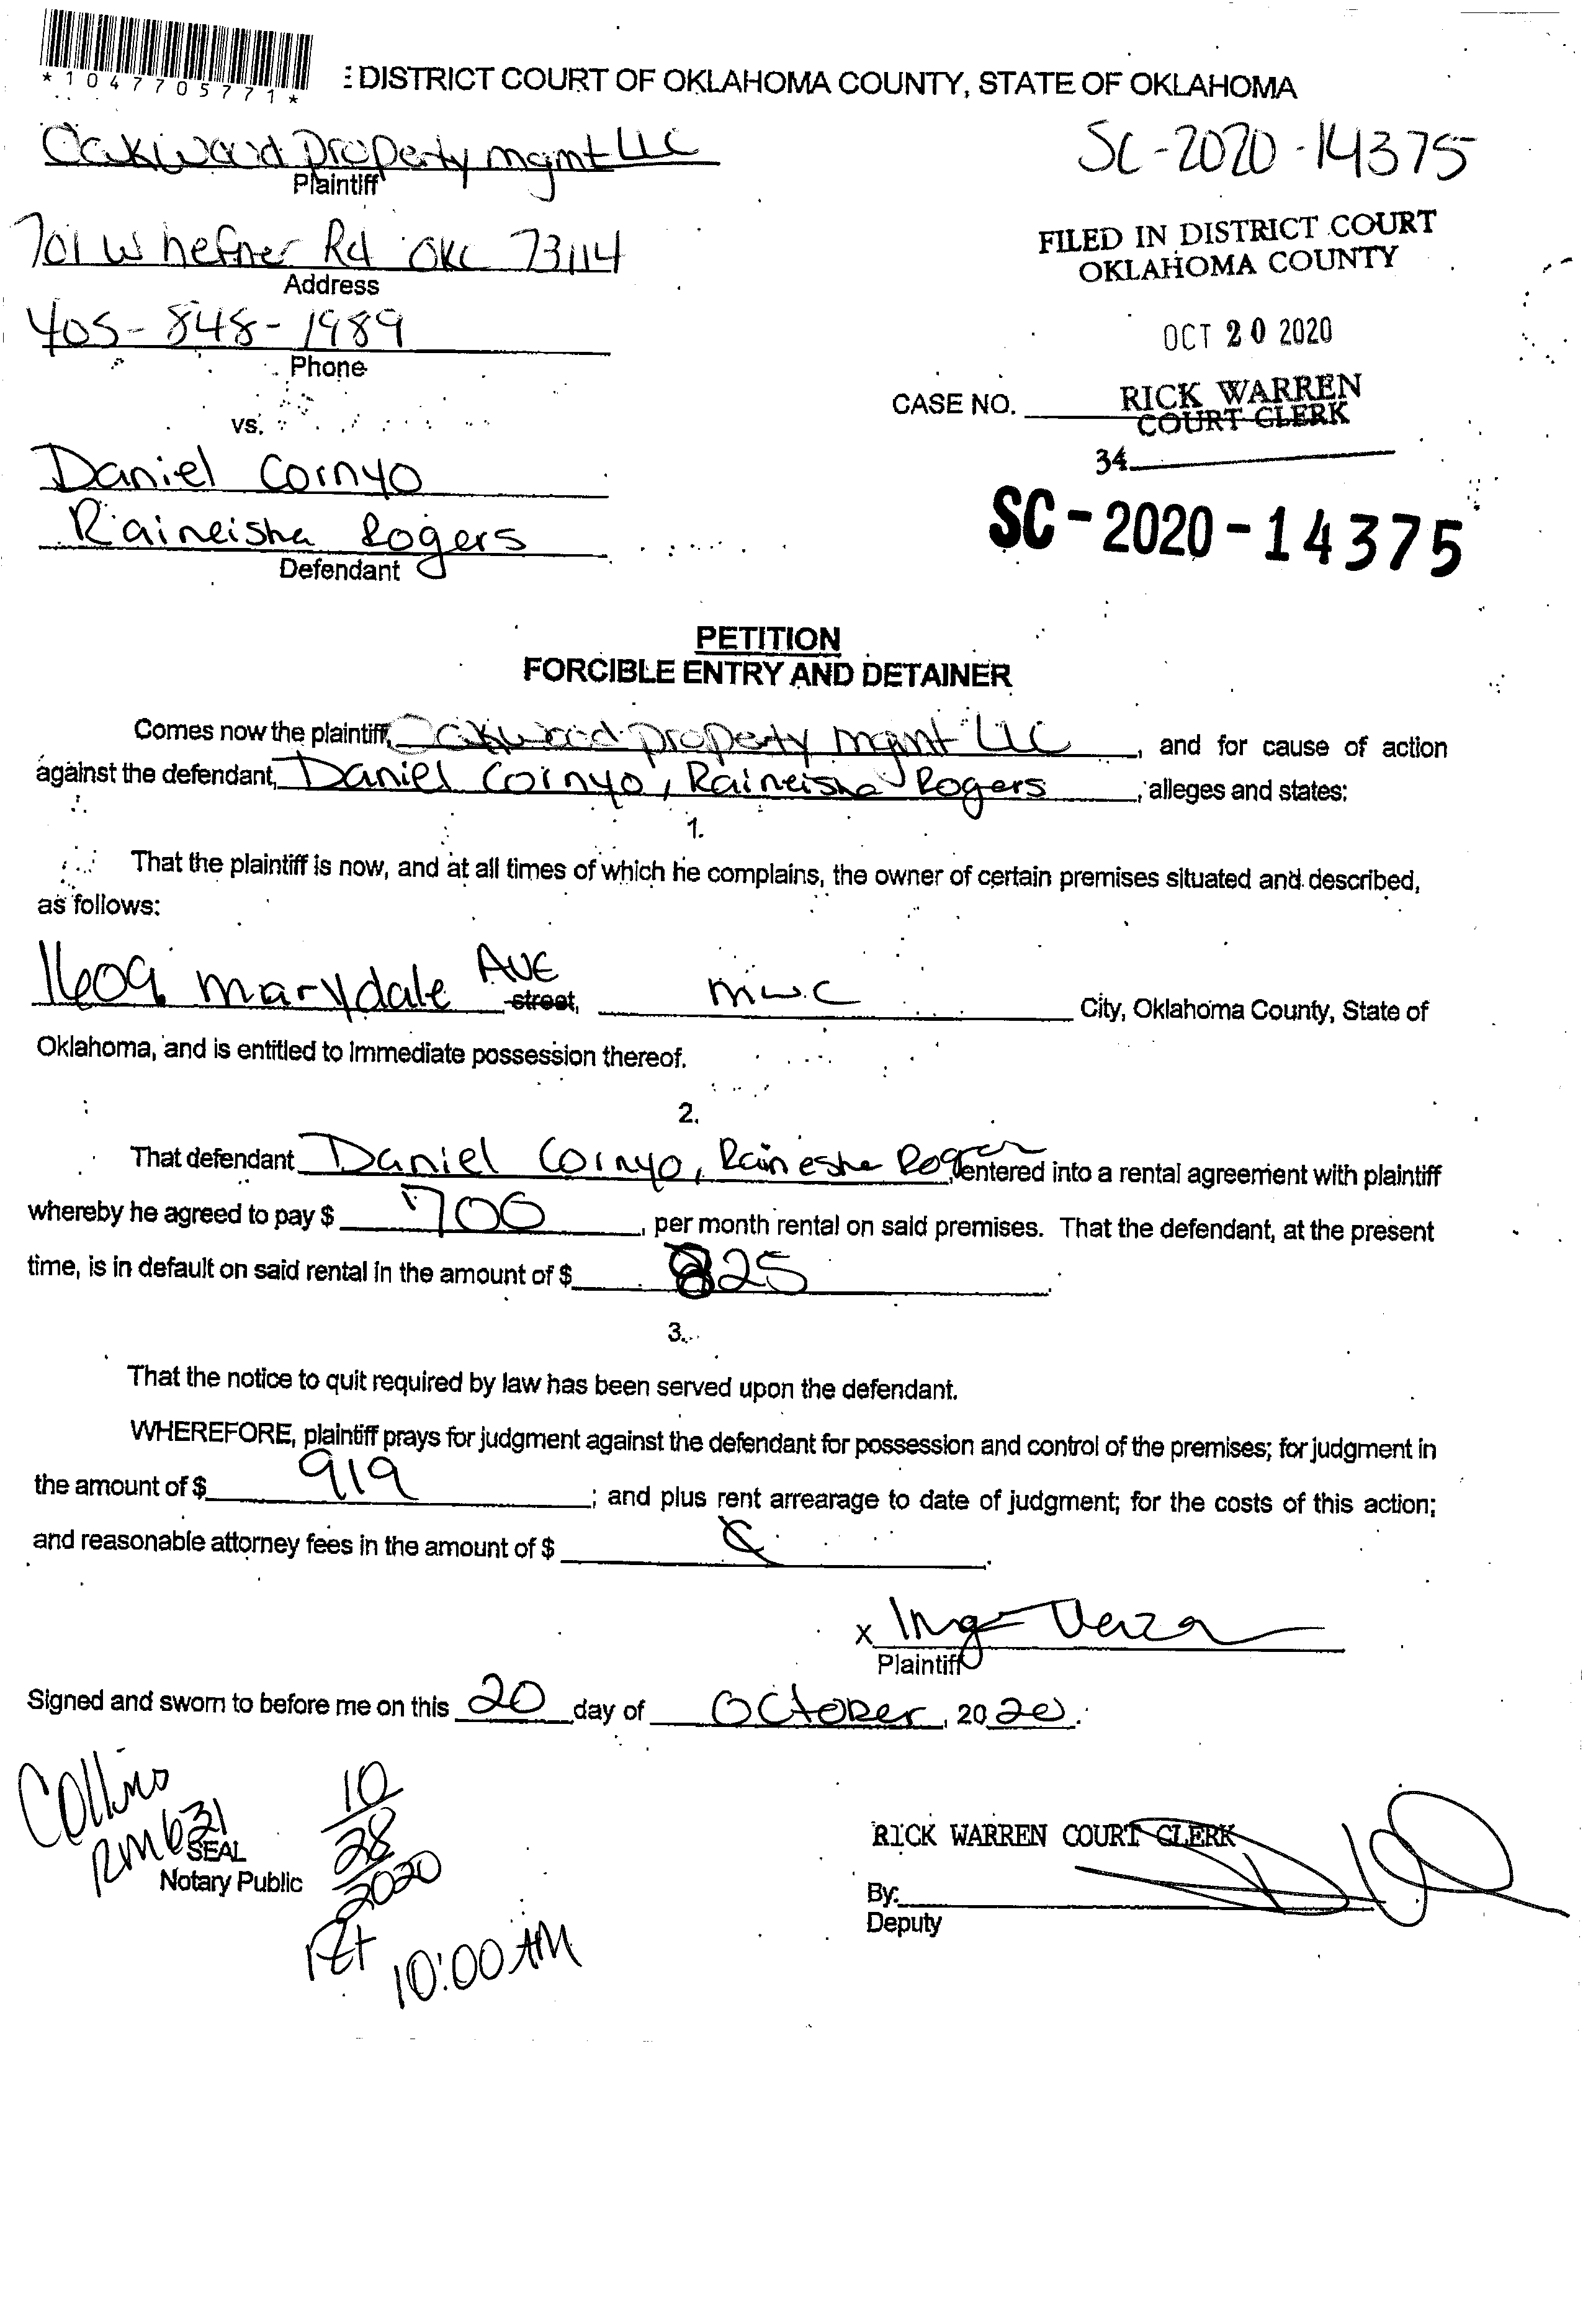 *1047705771*
E DISTRICT COURT OF OKLAHOMA COUNTY, STATE OF OKLAHOMA
Oakwood property mgmt LLC
Plaintiff
SC-2020-14375
701 W hefner Rd OKC 73114
Address
FILED IN DISTRICT COURT
OKLAHOMA COUNTY
405-848-1989
Phone
OCT 20 2020
CASE NO.
RICK WARREN
COURT CLERK
vs.
34
Daniel Cornyo
Raineisha Rogers
Defendant
SC-2020-14375
PETITION
FORCIBLE ENTRY AND DETAINER
Comes now the plaintiff, Oakwood property mgmt LLC, and for cause of action
against the defendant, Daniel Cornyo, Raineisha Rogers, alleges and states:
1.
That the plaintiff is now, and at all times of which he complains, the owner of certain premises situated and described,
as follows:
1609 marydale AVE street, mwc City, Oklahoma County, State of
Oklahoma, and is entitled to immediate possession thereof.
2.
That defendant Daniel Cornyo, Rainesha Roger, entered into a rental agreement with plaintiff
whereby he agreed to pay $ 700, per month rental on said premises. That the defendant, at the present
time, is in default on said rental in the amount of $ 825.
3.
That the notice to quit required by law has been served upon the defendant.
WHEREFORE, plaintiff prays for judgment against the defendant for possession and control of the premises; for judgment in
the amount of $ 919; and plus rent arrearage to date of judgment; for the costs of this action;
and reasonable attorney fees in the amount of $
X
Plaintiff
Signed and sworn to before me on this 20 day of October, 2020.
Collins
RM 631
SEAL
Notary Public
10
28
2020
10:00 AM
RICK WARREN COURT CLERK
By:
Deputy